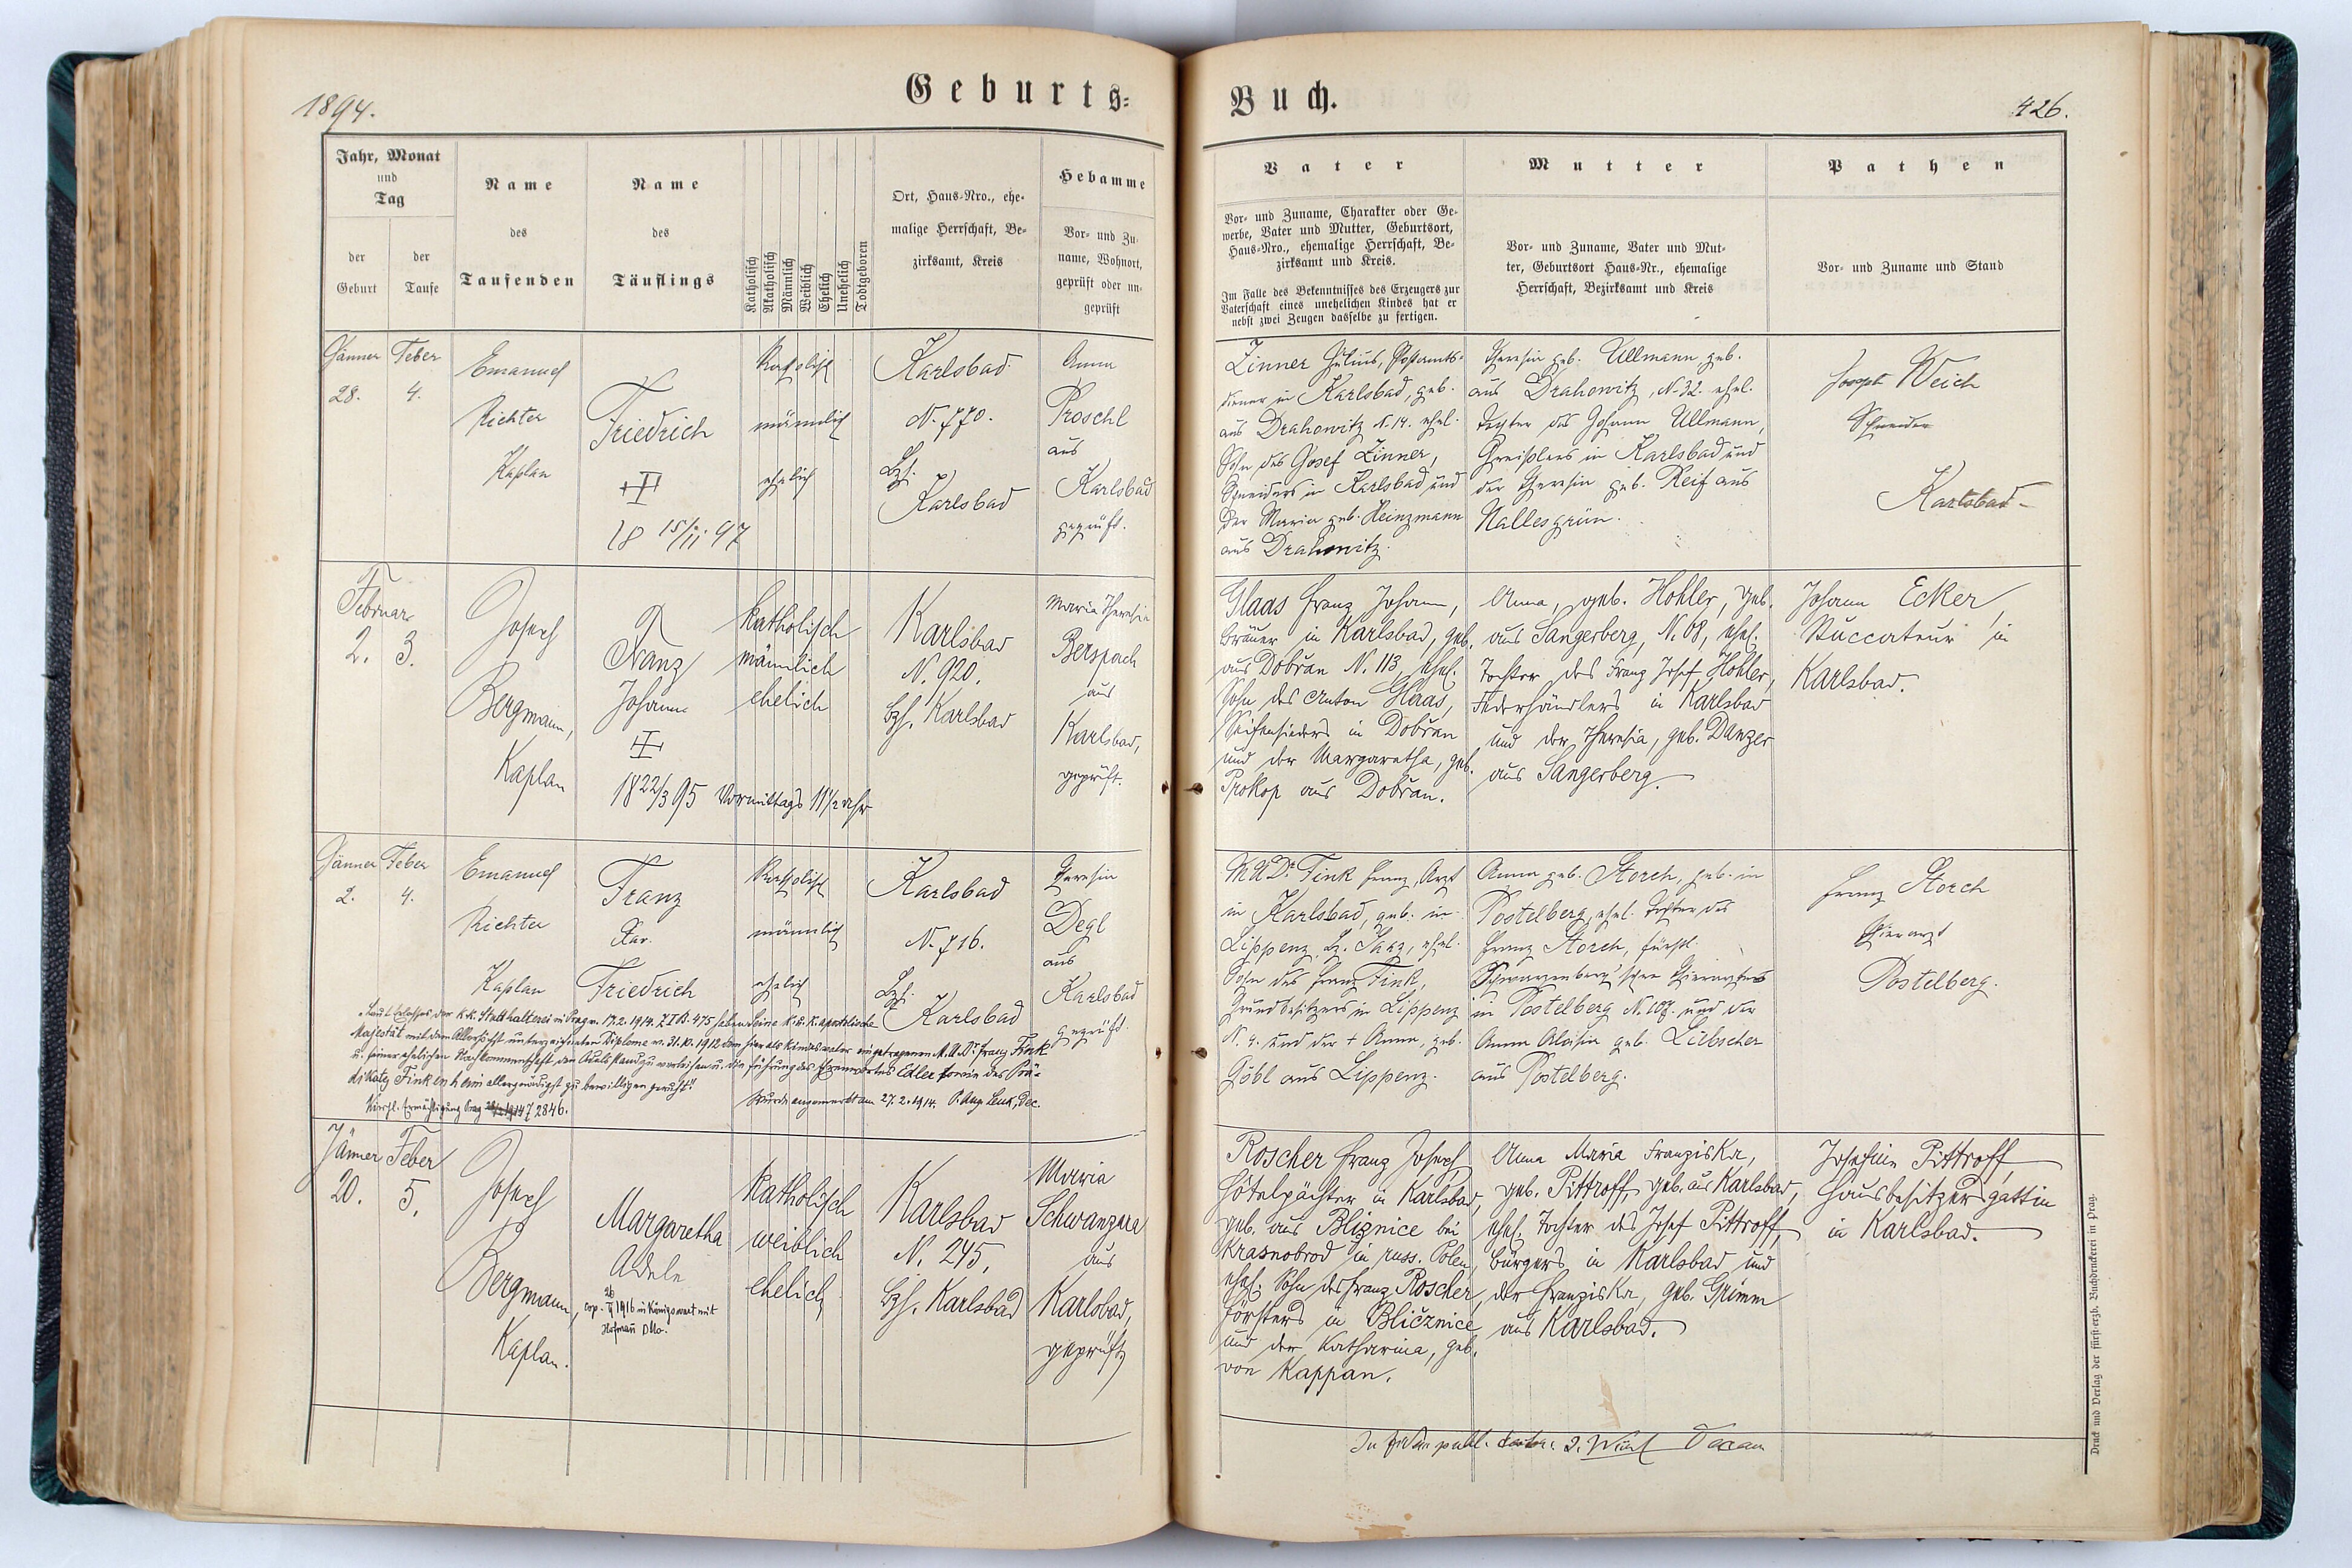 1894.
Geburts-
Jahr, Monat
und
Tag
der
Geburt
der
Taufe
Name
des
Taufenden
Name
des
Täuflings
Katholisch
Akatholisch
Männlich
Weiblich
Ehelich
Unehelich
Todtgeboren
Ort, Haus-Nro., ehe-
malige Herrschaft, Be-
zirksamt, Kreis
Hebamme
Vor- und Zu-
name, Wohnort,
geprüft oder un-
geprüft
Jänner
28.
Feber
4.
Emanuel
Richter
Kaplan
Friedrich
18 15/II 97
Katholisch
männlich
ehelich
Karlsbad
N. 770.
Bzh.
Karlsbad
Anna
Proschl
aus
Karlsbad
geprüft.
Februar
2. 3.
Joseph
Bergmann,
Kaplan
Franz
Johann
18 22/3 95 Vormittags 11 1/2 Uhr
katholisch
männlich
ehelich
Karlsbad
N. 920.
Bzh. Karlsbad
Maria Theresia
Berspach
aus
Karlsbad,
geprüft.
Jänner
2.
Feber
4.
Emanuel
Richter
Kaplan
Franz
Xav.
Friedrich
Katholisch
männlich
ehelich
Karlsbad
N. 716.
Bzh.
Karlsbad
Theresia
Degl
aus
Karlsbad
geprüft.
Laut Erlasses der k.k. Statthalterei in Prag v. 17.2.1914. Z I B. 475 haben Seine k. u. k. apostolische
Majestät mit dem Allerhöchst unterzeichneten Diplome v. 31.10.1912 dem hier als Kindesvater eingetragenen M.U.Dr. Franz Fink
u. seiner ehelichen Nachkommenschaft den Adelsstand zu verleihen u. die Führung des Ehrenwortes Edler sowie des Prä-
dikates Finkenheim allergnädigst zu bewilligen geruht!
Kirchl. Ermächtigung Prag 2846.
Wurde angemerkt am 27.2.1914. P. Aug. Dec.
Jänner
20.
Feber
5.
Joseph
Bergmann,
Kaplan.
Margaretha
Adele
cop. 26/V 1916 in Königswart mit
Hofmann Otto.
katholisch
weiblich
ehelich
Karlsbad
N. 245,
Bzh. Karlsbad
Maria
Schwanzara
aus
Karlsbad,
geprüft
Buch.
426.
Vater
Vor- und Zuname, Charakter oder Ge-
werbe, Vater und Mutter, Geburtsort,
Haus-Nro., ehemalige Herrschaft, Be-
zirksamt und Kreis.
Im Falle des Bekenntnisses des Erzeugers zur
Vaterschaft eines unehelichen Kindes hat er
nebst zwei Zeugen dasselbe zu fertigen.
Mutter
Vor- und Zuname, Vater und Mut-
ter, Geburtsort Haus-Nr., ehemalige
Herrschaft, Bezirksamt und Kreis
Pathen
Vor- und Zuname und Stand
Zinner Julius, Postamts-
diener in Karlsbad, geb.
aus Drahowitz N. 14. ehel.
Sohn des Josef Zinner,
Schneiders in Karlsbad und
der Maria geb. Heinzmann
aus Drahowitz.
Theresia geb. Ullmann geb.
aus Drahowitz, N. 32. ehel.
Tochter des Johann Ullmann,
Greißlers in Karlsbad und
der Theresia geb. Reif aus
Nallesgrün.
Joseph Weich
Schneider
Karlsbad
Glaas Franz Johann,
Bräuer in Karlsbad, geb.
aus Dobřan N. 113, ehel.
Sohn des Anton Glaas,
Seifensieders in Dobřan
und der Margaretha, geb.
Prokop aus Dobřan.
Anna, geb. Hohler, geb.
aus Sangerberg, N. 68, ehel.
Tochter des Franz Josef Hohler,
Federhändlers in Karlsbad
und der Theresia, geb. Danzer
aus Sangerberg.
Johann Ecker,
Stuccateur in
Karlsbad.
M.U.Dr. Fink Franz, Arzt
in Karlsbad, geb. in
Lippenz, B. Saaz, ehel.
Sohn des Franz Fink,
Grundbesitzers in Lippenz
N. 4. und der + Anna, geb.
Göbl aus Lippenz.
Anna geb. Storch, geb. in
Postelberg, ehel. Tochter des
Franz Storch, fürstl.
Schwarzenberg'schen Thierarztes
in Postelberg N. 107. und der
Anna Aloisia geb. Liebscher
aus Postelberg.
Franz Storch
Thierarzt
Postelberg.
Roscher Franz Joseph,
Hôtelpächter in Karlsbad,
geb. aus Bliznice bei
Krasnobrod in russ. Polen,
ehel. Sohn des Franz Roscher,
Försters in Bličznice
und der Katharina, geb.
von Kappan.
Anna Maria Franziska,
geb. Pittroff, geb. aus Karlsbad,
ehel. Tochter des Josef Pittroff,
Bürgers in Karlsbad und
der Franziska, geb. Grimm
aus Karlsbad.
Josefine Pittroff,
Hausbesitzersgattin
in Karlsbad.
Druck und Verlag der fürst-erzb. Buchdruckerei in Prag.